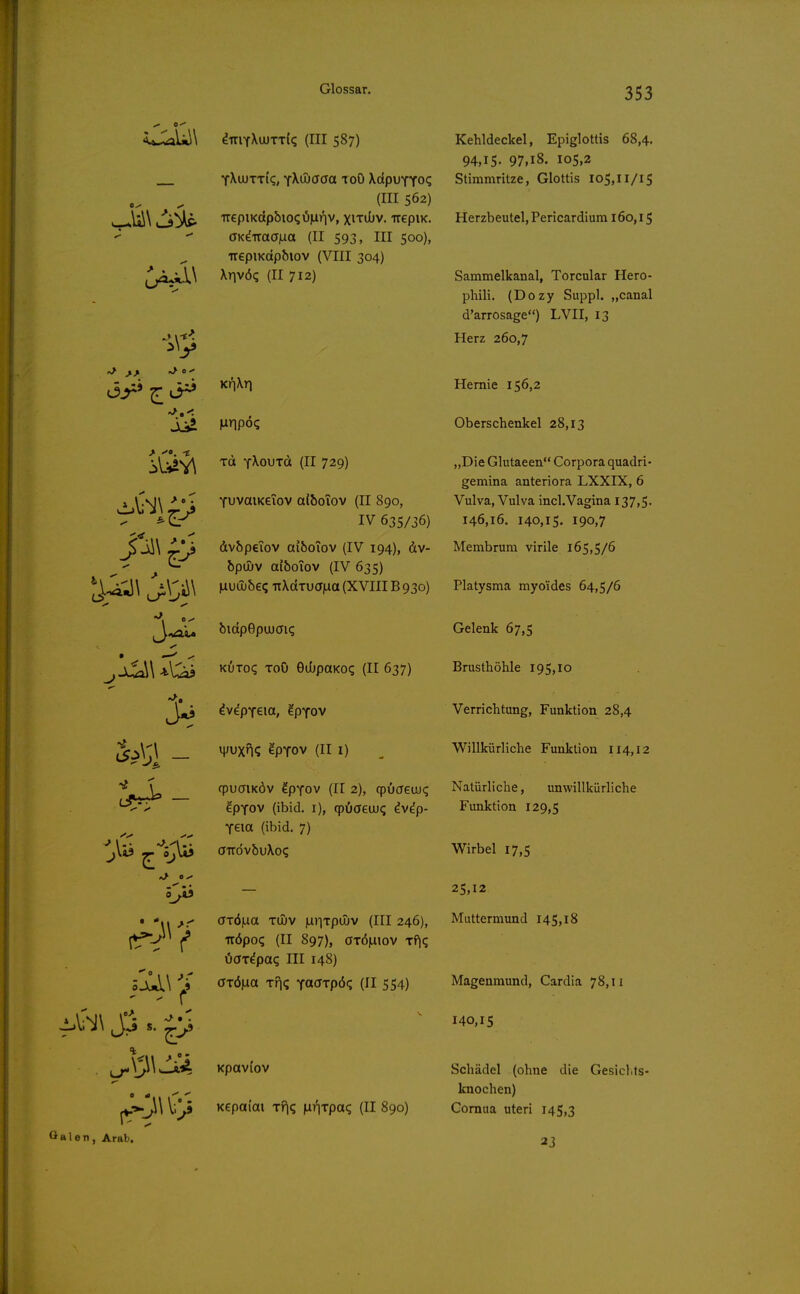 Glossar.
353
ἐπιγλωττίς (III 587)
Kehldeckel, Epiglottis 68,4.
94,15. 97,18. 105,2
— γλωττίς, γλῶσσα τοῦ λάρυγγος
Stimmritze, Glottis 105,11/15
(III 562)
غلاف القلب περικάρδιος ὑμήν, χιτὼν. περικ.
Herzbeutel, Pericardium 160,15
σκέπασμα (II 593, III 500),
περικάρδιον (VIII 304)
ληνός (II 712)
Sammelkanal, Torcular Hero-
phili. (Dozy Suppl. „canal
d'arrosage“) LVII, 13
Herz 260,7
فتق ج فتوق κήλη
Hernie 156,2
فخذ μηρός
Oberschenkel 28,13
τὰ γλουτά (II 729)
„Die Glutaeen“ Corpora quadri-
gemina anteriora LXXIX, 6
فرج الاناث γυναικεῖον αἰδοῖον (II 890,
Vulva, Vulva incl. Vagina 137,5.
IV 635/36)
146,16. 140,15. 190,7
فرج الذكر ἀνδρεῖον αἰδοῖον (IV 194), ἀν-
Membrum virile 165,5/6
δρῶν αἰδοῖον (IV 635)
μυῶδες πλάτυσμα (XVIII B 930)
Platysma myoïdes 64,5/6
مفصل διάρθρωσις
Gelenk 67,5
فضاء الصدر κύτος τοῦ θώρακος (II 637)
Brusthöhle 195,10
فعل ἐνέργεια, ἔργον
Verrichtung, Funktion 28,4
— ارادى ψυχῆς ἔργον (II 1)
Willkürliche Funktion 114,12
— طبيعى φυσικὸν ἔργον (II 2), φύσεως
Natürliche, unwillkürliche
ἔργον (ibid. 1), φύσεως ἐνέρ-
Funktion 129,5
γεια (ibid. 7)
فقارة ج فقار σπόνδυλος
Wirbel 17,5
فقرة —
25,12
فم الرحم στόμα τῶν μητρῶν (III 246),
Muttermund 145,18
πόρος (II 897), στόμιον τῆς
ὑστέρας III 148)
فم المعدة στόμα τῆς γαστρός (II 554)
Magenmund, Cardia 78,11
140,15
قحف الرأس κρανίον
Schädel (ohne die Gesichts-
knochen)
قرنا الرحم κεραίαι τῆς μήτρας (II 890)
Cornua uteri 145,3
Galen, Arab.
23